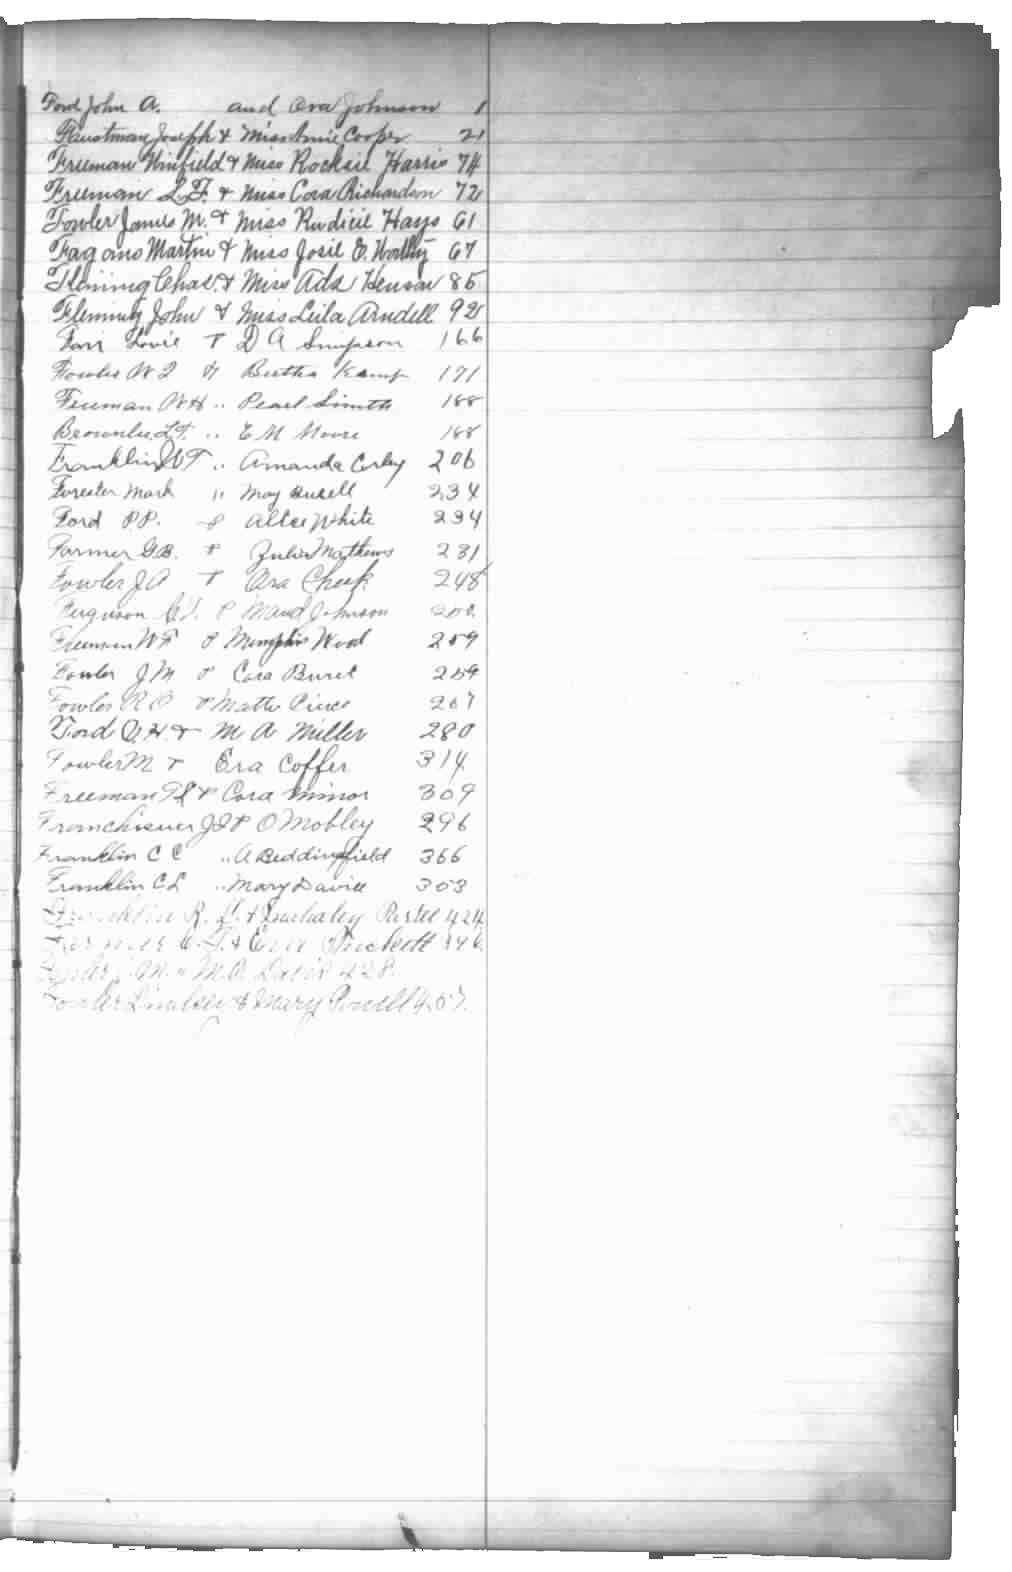 Ford John A. and Ora Johnson 1
Faustman Joseph & Miss Annie Cooper 21
Freeman Winfield & Miss Rocksie Harris 74
Freeman L.F. & Miss Cora Richardson 72
Fowler James M. & Miss Rudicil Hays 61
Fagans Martin & Miss Josie E. Worthy 67
Fleming Chas. & Miss Ada Henson 85
Fleming John & Miss Leila Arndell 92
Farr Lovie & D A Simpson 166
Fowler W & Bertha Kemp 171
Freeman W H .. Pearl Smith 188
Brownlee L F. .. E M Moore 188
Franklin W T .. Amanda Corley 206
Forester Mark " May Busell 234
Ford P P. & Alice White 234
Farmer G B. & Julia Mathews 231
Fowler J A & Ora Cheek 248
Ferguson & Maud Johnson
Freeman W F & Memphis Wood 259
Fowler J M & Cora Buret 259
Fowler R O & Mattie 267
Ford O. H. & M A Miller 280
Fowler M & Era Coffer 314
Freeman & Cora Minor 309
Franchiseur J & O Mobley 296
Franklin C C .. A Beddingfield 366
Franklin C L .. Mary Davill 353
Franklin R. & Pirkle 424
Farmer & Puckett
M. & M. O. Davis 428.
Fowler Lindsey & Mary Powell 457.